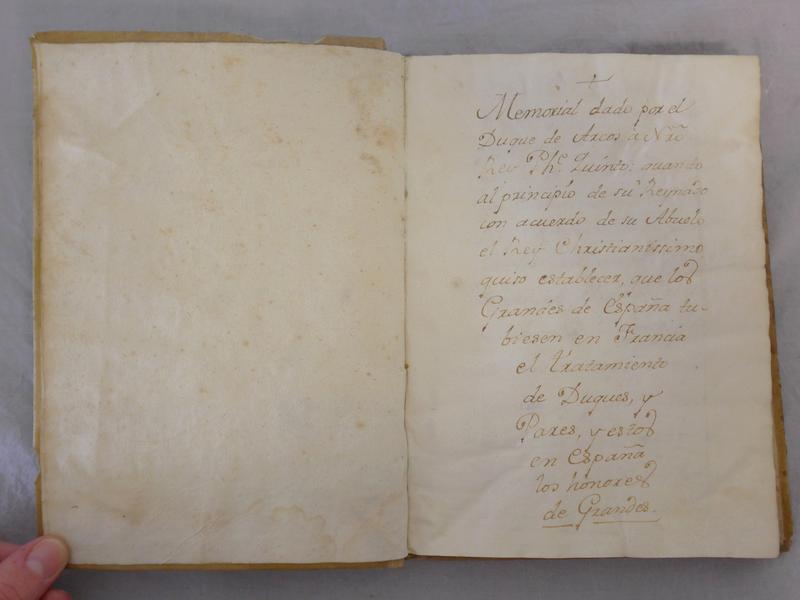 Memorial dado por el
Duque de Arcos à Nr̃o
Rey Phe. Quinto: quando
al principio de su Reynado
con acuerdo de su Abuelo
el Rey Christianissimo
quiso establecer, que los
Grandes de España tu-
biesen en Francia
el tratamiento
de Duques, y
Pares, y estos
en España
los honores
de Grandes.